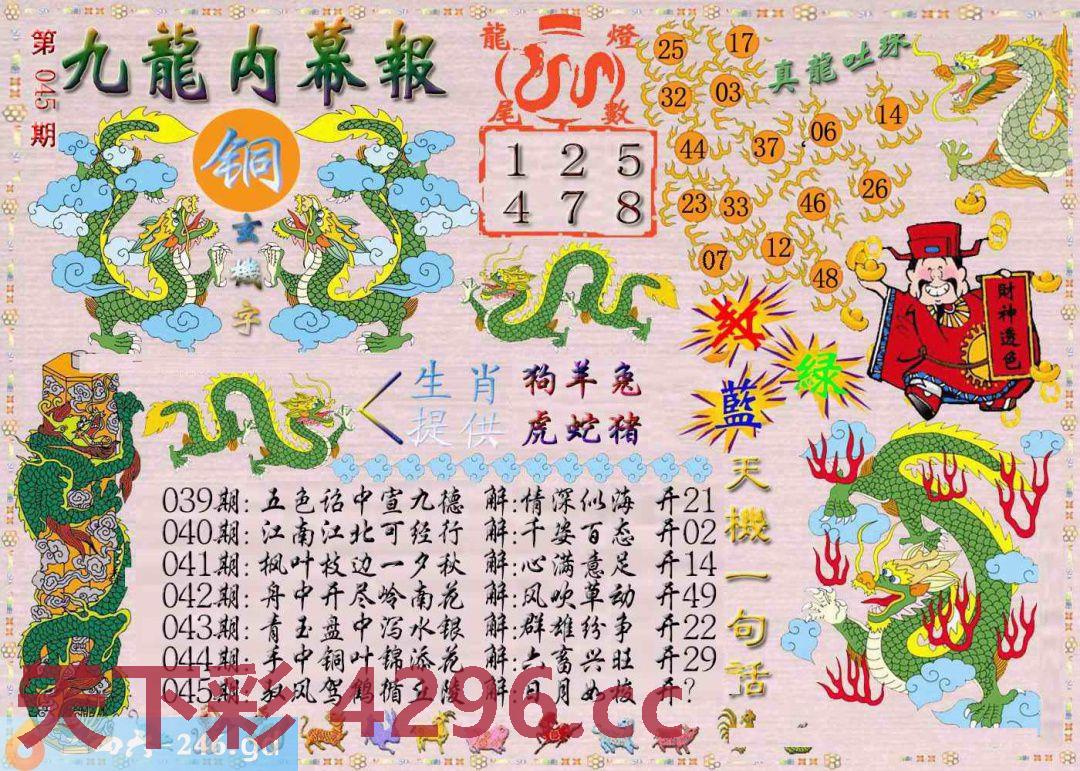 第045期
九龍内幕報
铜
玄機字
龍燈
尾數
1 2 5
4 7 8
真龍吐珠
25 17
32 03
14
06
44 37
26
23 33 46
12
07 48
財神透色
红
绿
藍
生肖 狗羊兔
提供 虎蛇猪
天機一句話
039期: 五色诏中宣九德 解:情深似海 开21
040期: 江南江北可经行 解:千姿百态 开02
041期: 枫叶枝边一夕秋 解:心满意足 开14
042期: 舟中开尽岭南花 解:风吹草动 开49
043期: 青玉盘中泻水银 解:群雄纷争 开22
044期: 手中铜叶锦添花 解:六畜兴旺 开29
045期: 风驾鹤循丘陵 解:日月如梭 开?
天下彩 4296.cc
=246.gd